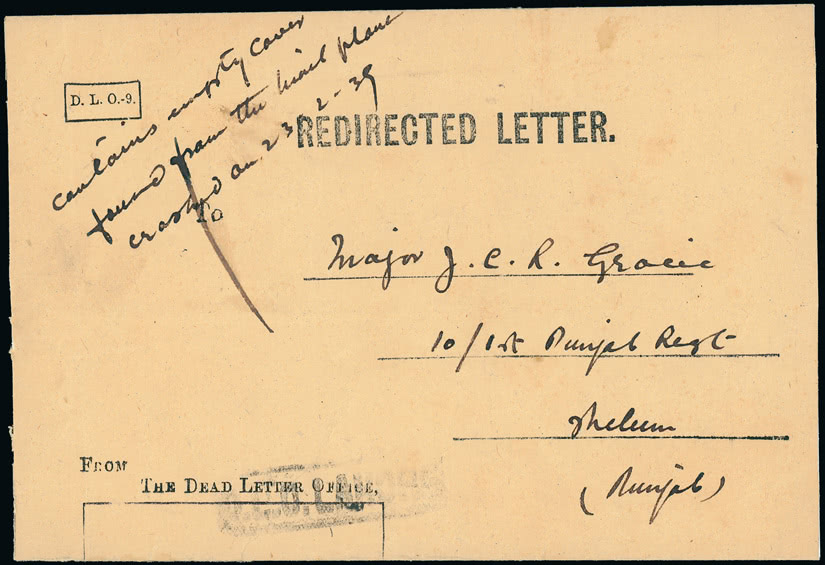 D. L. O.-9.
contains empty cover
found from the mail plane
crashed on 23-2-39
REDIRECTED LETTER.
To
Major J. C. R. Gracie
10/1st Punjab Regt
Jhelum
(Punjab)
FROM
THE DEAD LETTER OFFICE,
D.L.O.